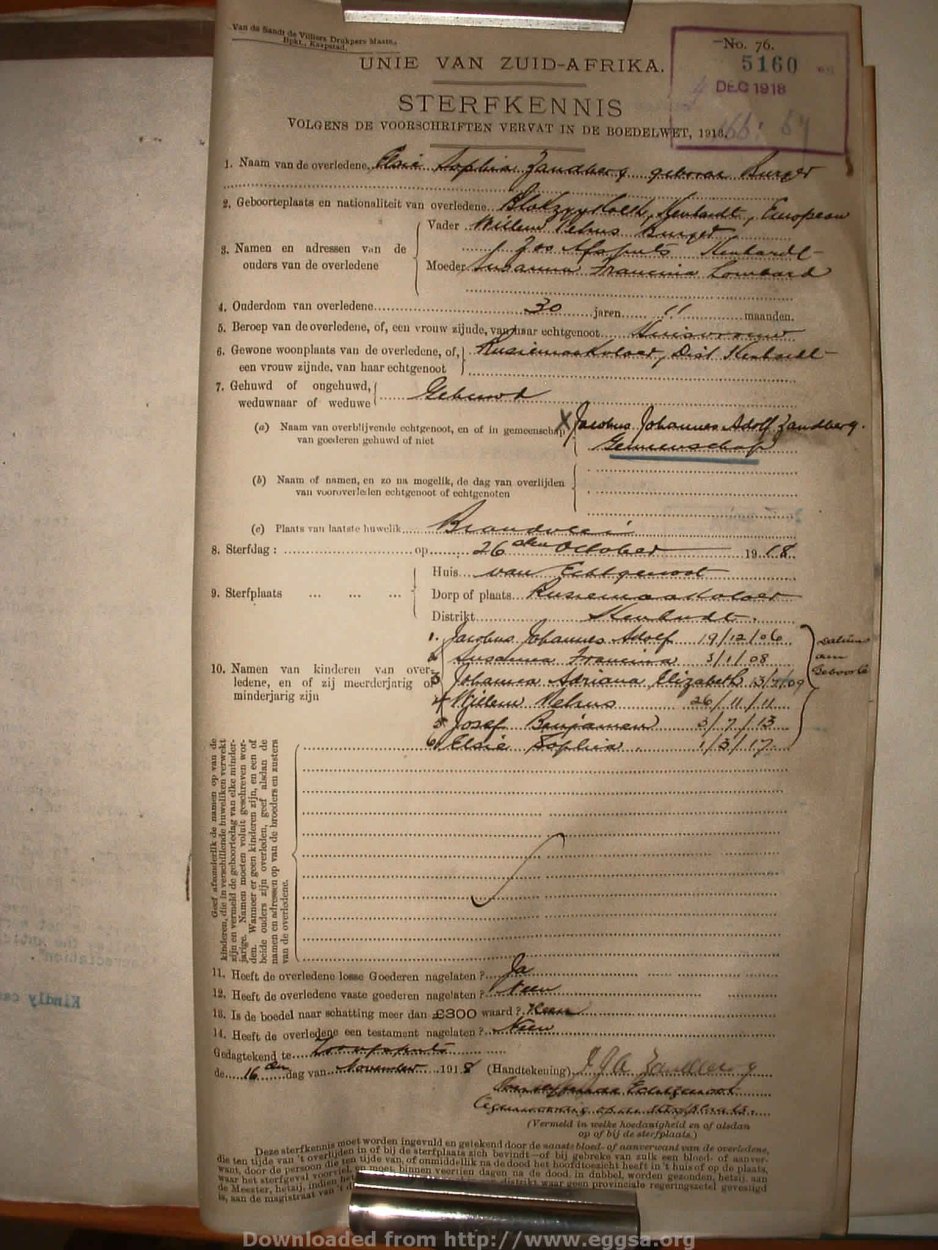 Van de Sandt de Villiers Drukpers Maats.,
Bpkt., Kaapstad.
No. 76.
UNIE VAN ZUID-AFRIKA.
5160
DEC 1918
STERFKENNIS
VOLGENS DE VOORSCHRIFTEN VERVAT IN DE BOEDELWET, 1913.
1. Naam van de overledene, Elsie Sophia Zandberg geboren Burger
2. Geboorteplaats en nationaliteit van overledene. Kenhardt, European
3. Namen en adressen van de ouders van de overledene
Vader Willem Petrus Burger
Kenhardt
Moeder Susanna Francina Lombard
4. Ouderdom van overledene 30 jaren 11 maanden.
5. Beroep van de overledene, of, een vrouw zijnde, van haar echtgenoot Huisvrouw
6. Gewone woonplaats van de overledene, of, een vrouw zijnde, van haar echtgenoot Dist Kenhardt
7. Gehuwd of ongehuwd, weduwnaar of weduwe Gehuwd
(a) Naam van overblijvende echtgenoot, en of in gemeenschap van goederen gehuwd of niet X Jacobus Johannes Adolf Zandberg.
Gemeenschap
(b) Naam of namen, en zo na mogelik, de dag van overlijden van vooroverleden echtgenoot of echtgenoten
(c) Plaats van laatste huwelik Brandvlei
8. Sterfdag : op 26 sten October 1918.
9. Sterfplaats
Huis van Echtgenoot
Dorp of plaats
Distrikt Kenhardt.
10. Namen van kinderen van overledene, en of zij meerderjarig of minderjarig zijn
1. Jacobus Johannes Adolf 19/12/06
2 Susanna Francina 3/1/08
3 Johanna Adriana Elizabeth /09
4 Willem Petrus 26/11/11
5 Josef Benjamen 3/7/13
6 Elsie Sophia. 1/3/17
datum
van
Geboorte
Geef afzonderlik de namen op van de kinderen, die in verschillende huweliken verwekt zijn en vermeld de geboortedag van elke minderjarige. Namen moeten voluit geschreven worden. Wanneer er geen kinderen zijn, en een of beide ouders zijn overleden, geef alsdan de namen en adressen op van de broeders en zusters van de overledene.
11. Heeft de overledene losse Goederen nagelaten ? Ja
12. Heeft de overledene vaste goederen nagelaten ? Neen
13. Is de boedel naar schatting meer dan £300 waard ? Neen
14. Heeft de overledene een testament nagelaten ? Neen
Gedagtekend te
de 16 den dag van November 1918 (Handtekening) J J A Zandberg
Echtgenoot
(Vermeld in welke hoedanigheid en of alsdan
op of bij de sterfplaats.)
Deze sterfkennis moet worden ingevuld en getekend door de naaste bloed- of aanverwant van de overledene,
die ten tijde van 't overlijden in of bij de sterfplaats zich bevindt—of bij gebreke van zulk een bloed- of aanver-
want, door de persoon die ten tijde van, of onmiddellik na de dood het hoofdtoezicht heeft in 't huis of op de plaats,
waar het sterfgeval voorviel, en moet, binnen veertien dagen na de dood, in dubbel, worden gezonden, hetzij, aan
de Meester, hetzij, indien het distrikt waar geen provinciale regeringszetel gevestigd
is, aan de magistraat van 't d
Kindly
Downloaded from http://www.eggsa.org